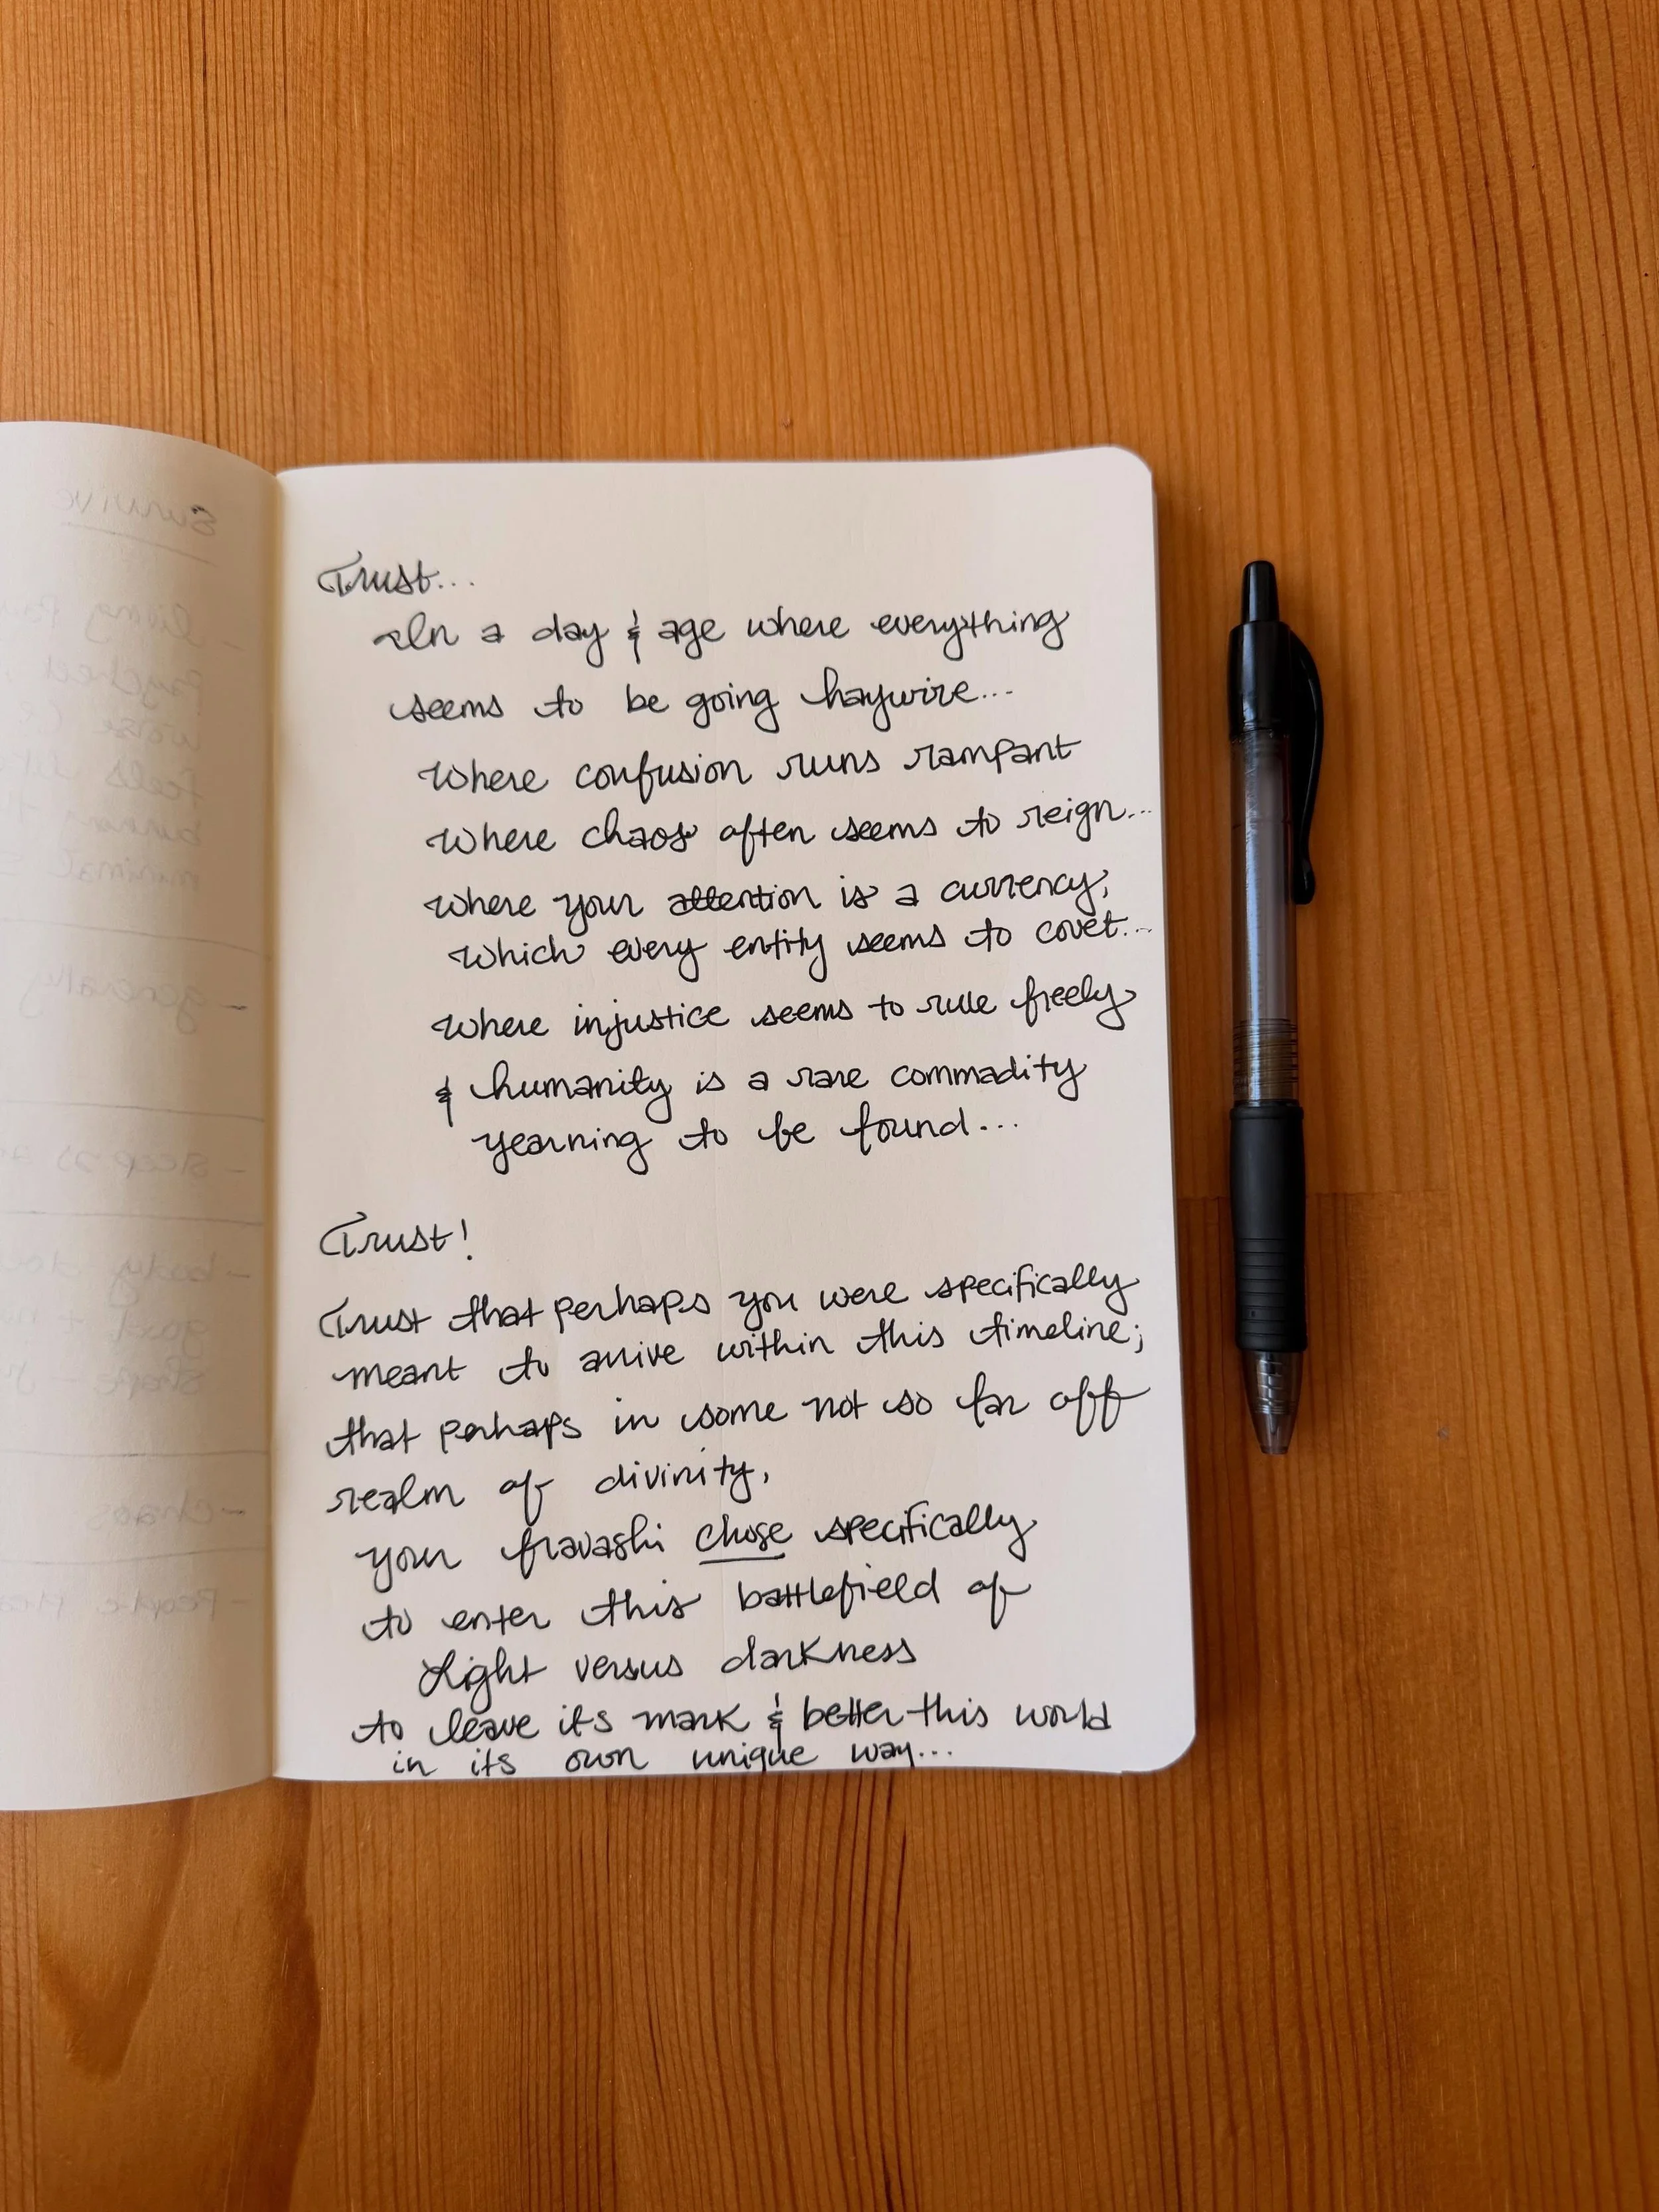 Trust...
In a day & age where everything
seems to be going haywire...
Where confusion runs rampant
Where chaos often seems to reign...
Where your attention is a currency,
Which every entity seems to covet...
Where injustice seems to rule freely
& humanity is a rare commadity
yearning to be found...
Trust!
Trust that perhaps you were specifically
meant to arrive within this timeline;
that perhaps in some not so far off
realm of divinity,
your fravashi chose specifically
to enter this battlefield of
Light versus darkness
to leave its mark & better this world
in its own unique way...
Survive
- generally
- sleep is
- body
- chaos
- People